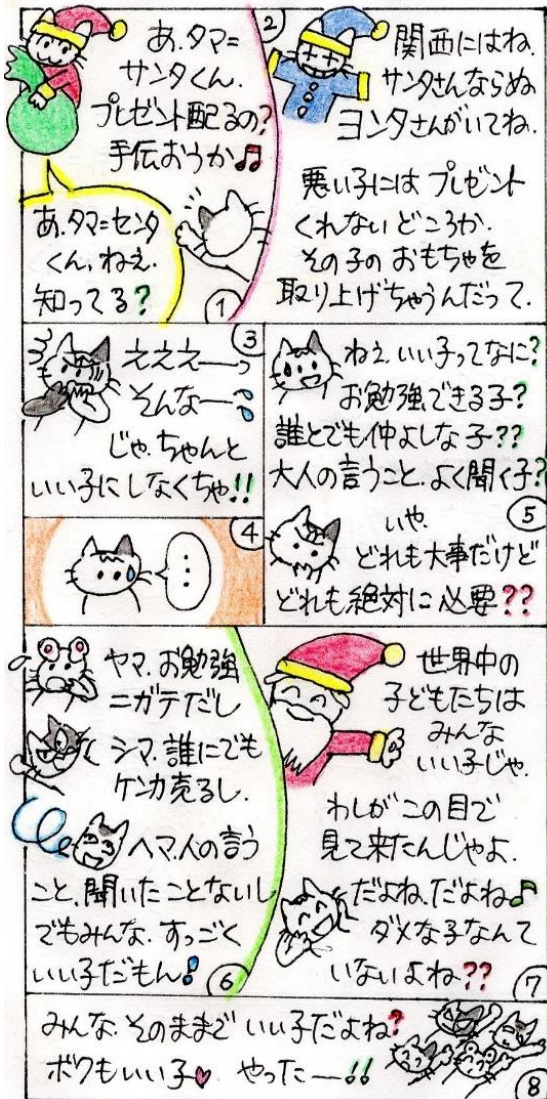 あ.タマ=
サンタくん.
プレゼント配るの?
手伝おうか♫
あ.タマ=センタ
くん.ねえ.
知ってる?
①
②
関西にはね.
サンタさんならぬ
ヨンタさんがいてね.
悪い子には プレゼント
くれない どころか.
その子の おもちゃを
取り上げちゃうんだって.
③
えええ――っ
そんな――
じゃ.ちゃんと
いい子にしなくちゃ!!
④
・・・
ねえ.いい子ってなに?
お勉強できる子?
誰とでも仲よしな子??
大人の言うこと.よく聞く子?
⑤
いや.
どれも大事だけど
どれも絶対に必要??
ヤマ.お勉強
ニガテだし
シマ.誰にでも
ケンカ売るし.
ヘマ.人の言う
こと.聞いたことないし
でもみんな.すっごく
いい子だもん!
⑥
世界中の
子どもたちは
みんな
いい子じゃ.
わしが この目で
見て来たんじゃよ.
だよね.だよね♪
ダメな子なんて
いないよね??
⑦
みんな.そのままで いい子だよね?
ボクもいい子♥ やったー!!
⑧